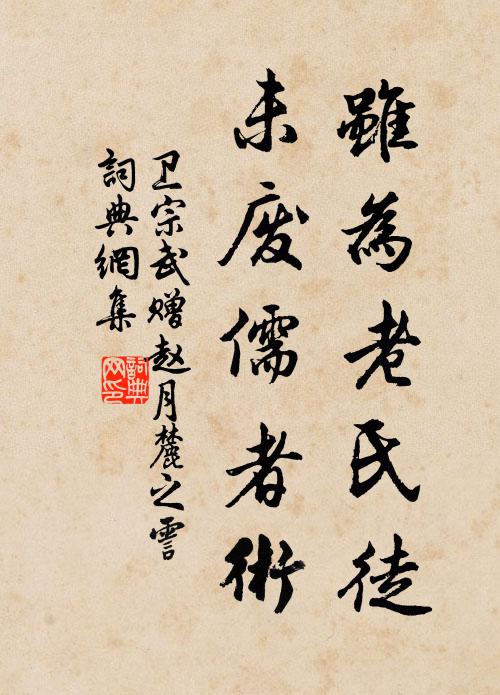 雖為老氏徒
未废儒者術
卫宗武赠赵月麓之雲
詞典網集
詞典
网印